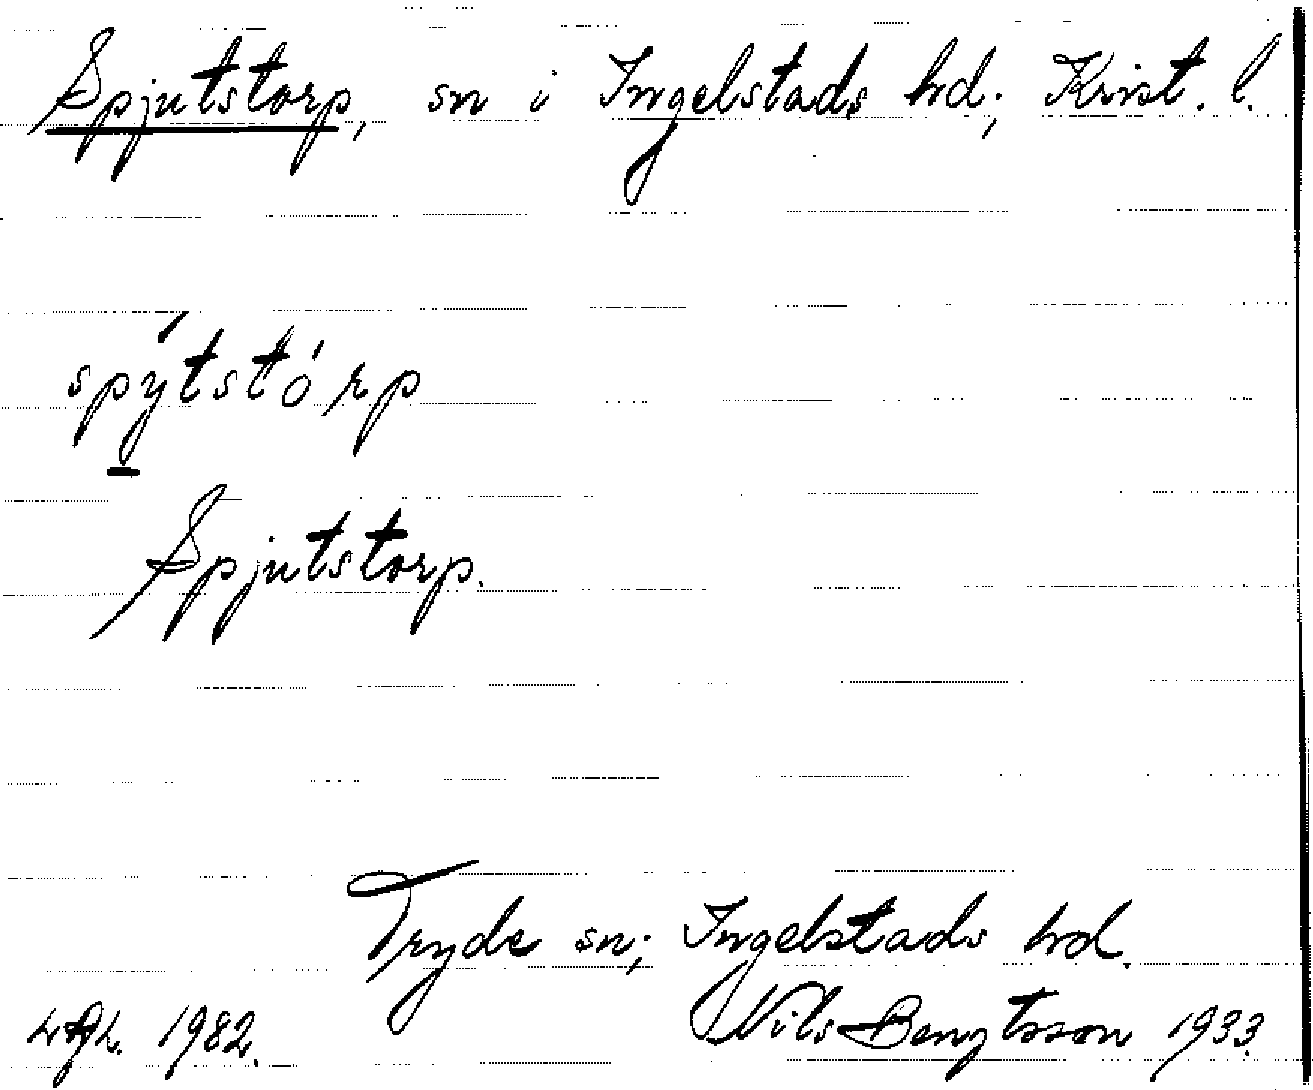 Spjutstorp, sn i Ingelstads hd; Krist. l.
spý̱tstórp
Spjutstorp.
Tryde sn; Ingelstads hd.
1982. Nils Bengtsson 1933.